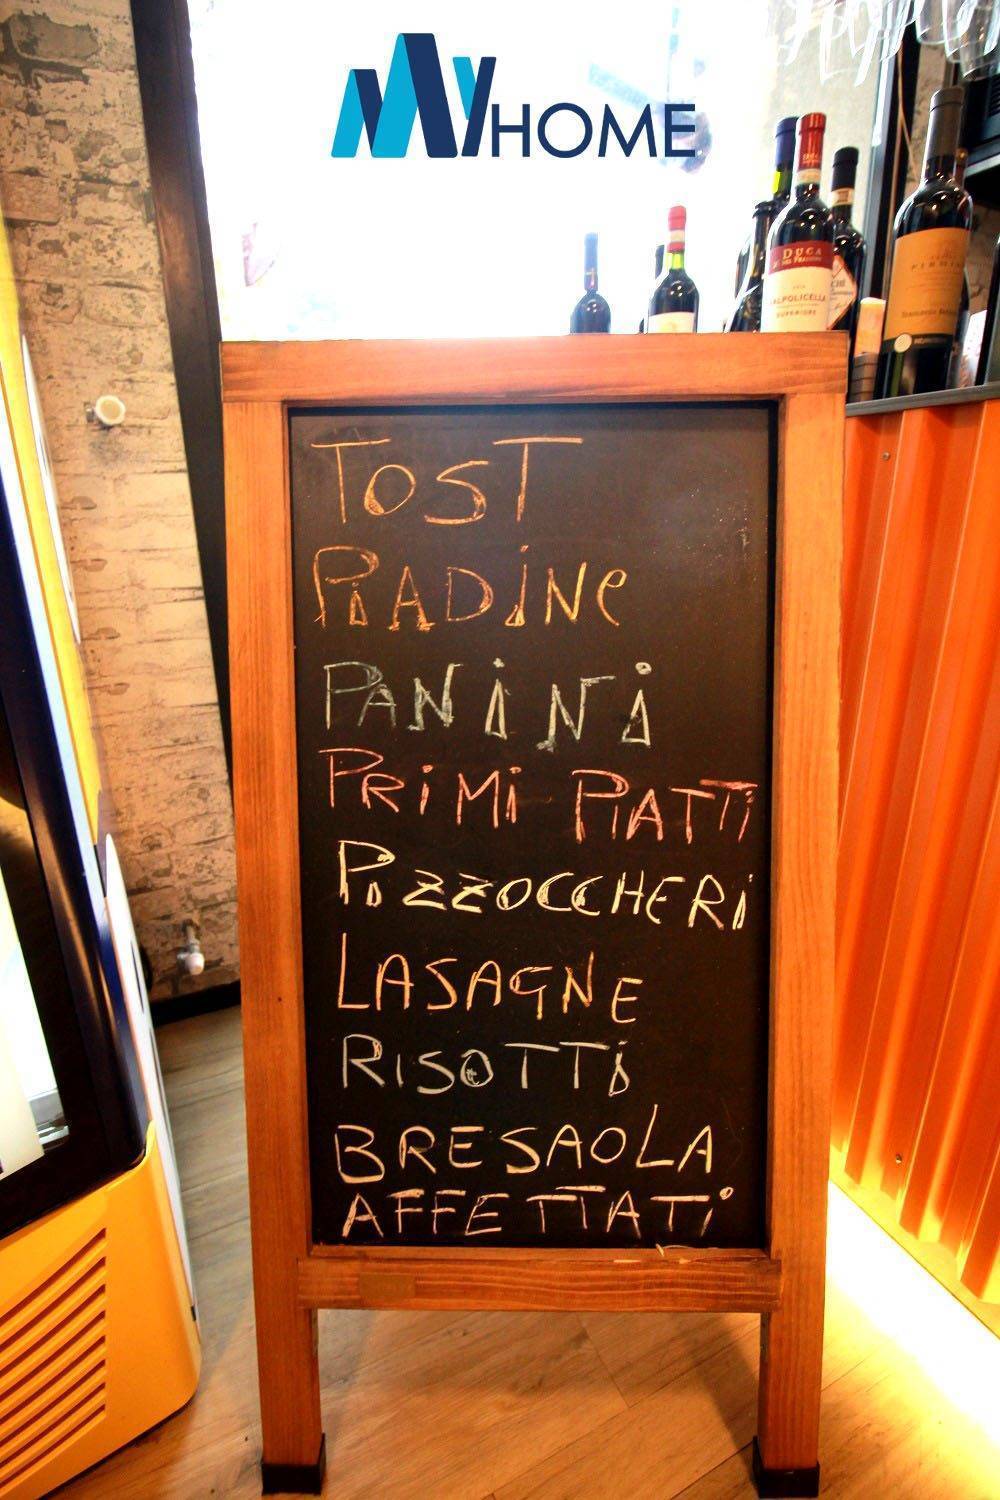 MY HOME
DUCA
DEL FRASSINO
VALPOLICELLA
SUPERIORE
TOST
PIADINE
PANINI
PRIMI PIATTI
PIZZOCCHERI
LASAGNE
RISOTTI
BRESAOLA
AFFETTATI